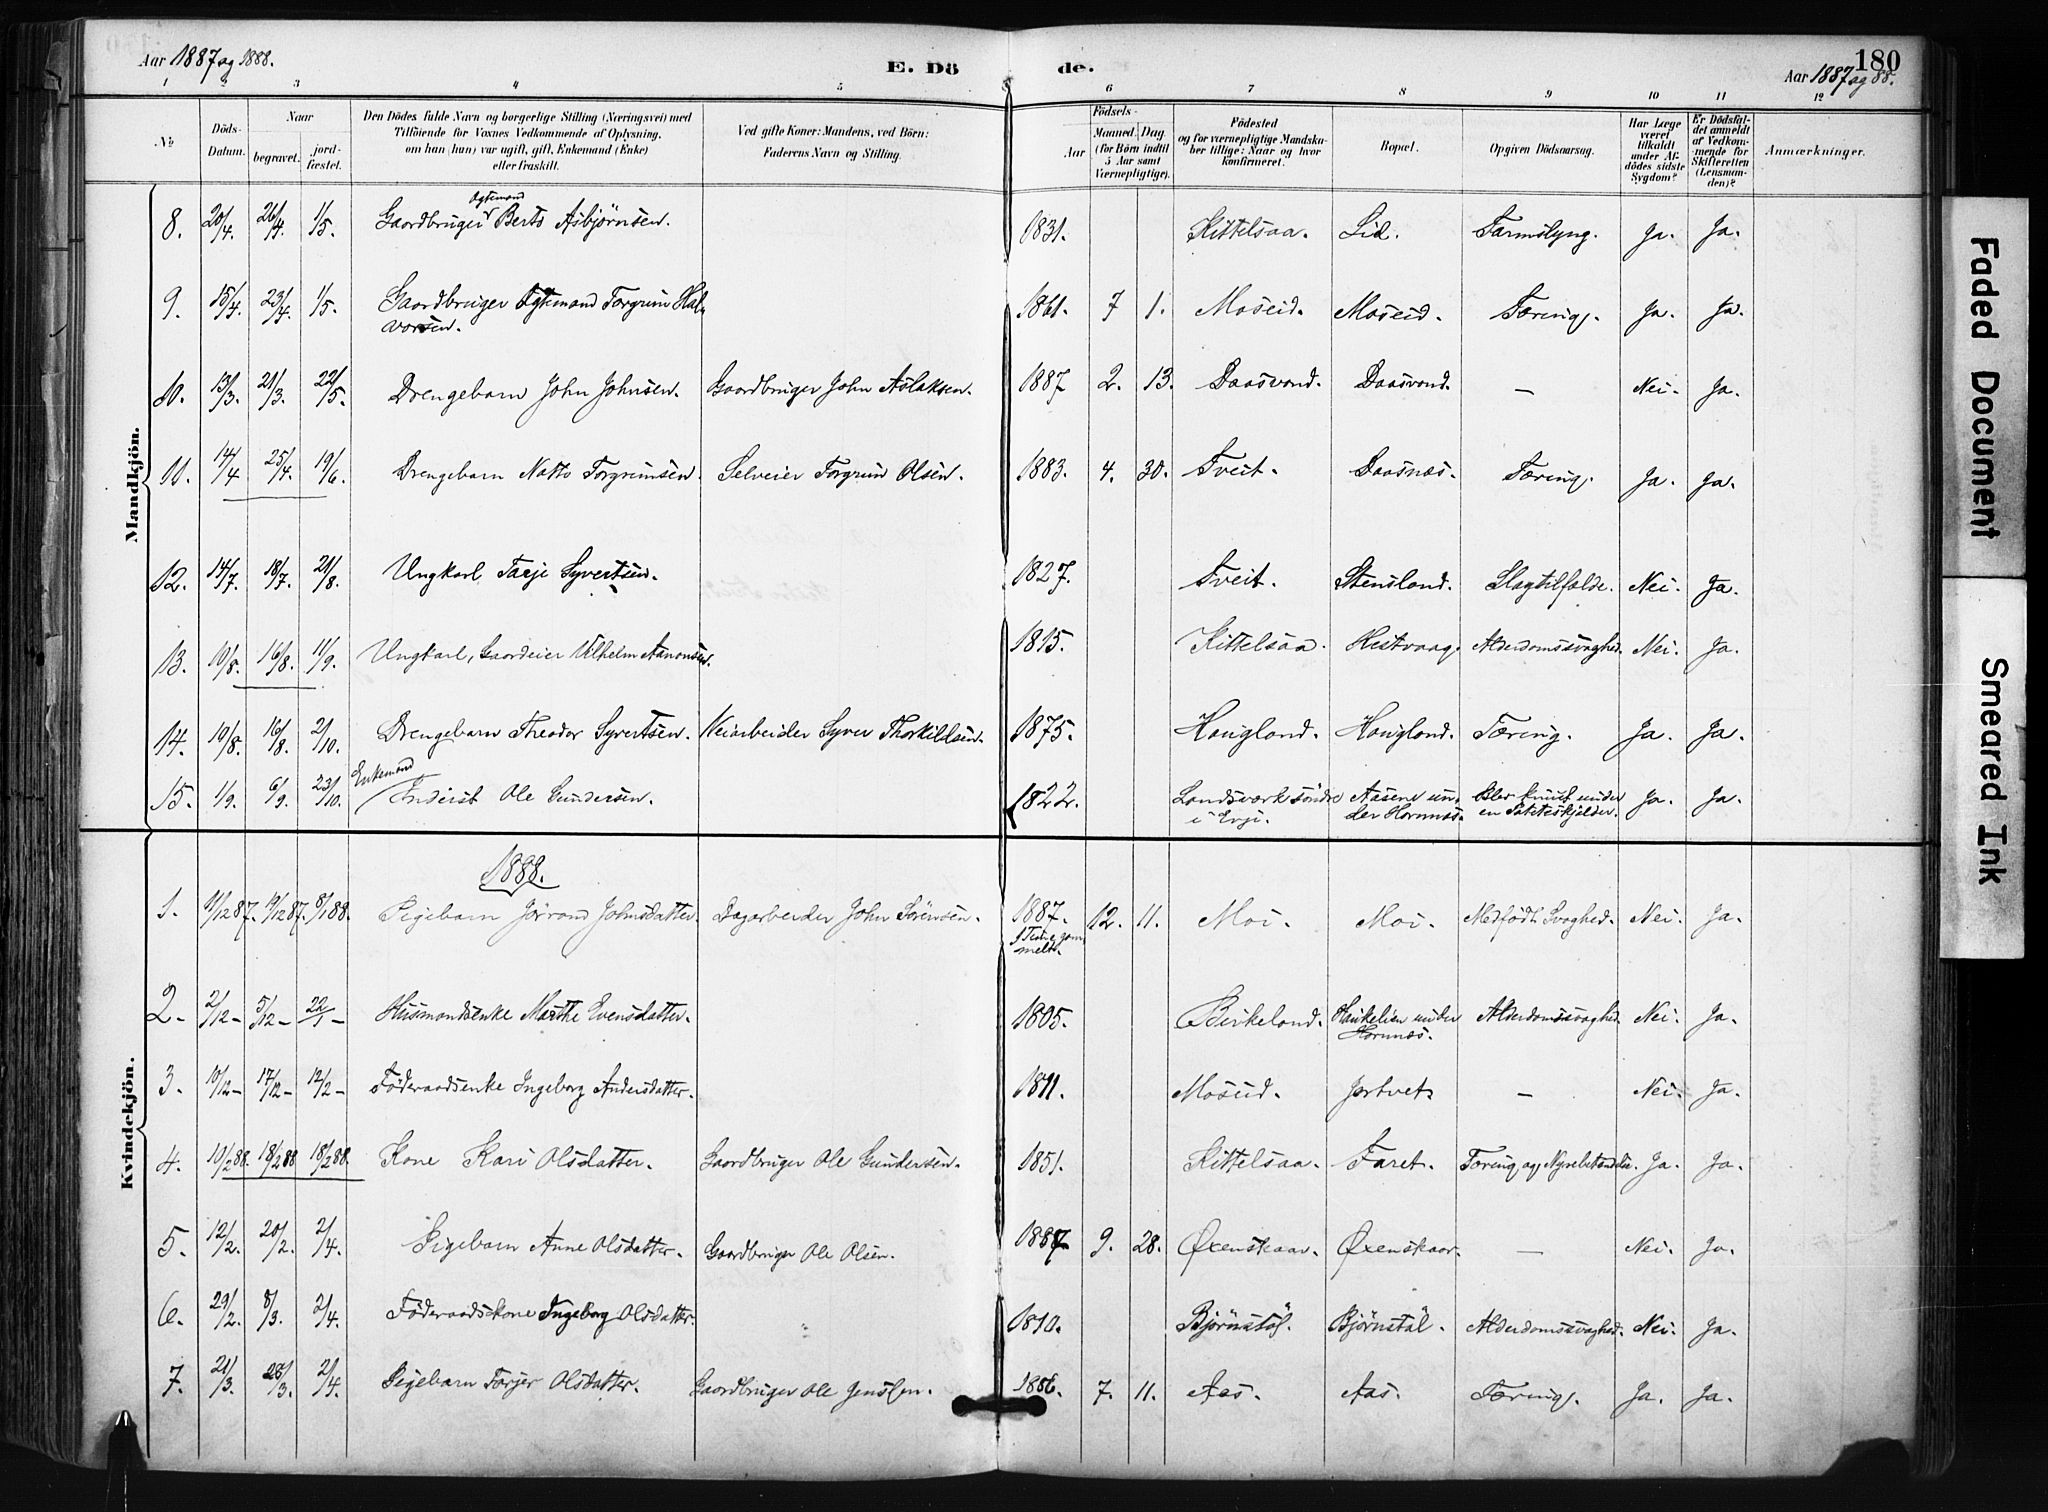 Aar 1887 og 1888.
E. Dö de.
180
Aar 1887 og 88.
1 2 3 4 5 6 7 8 9 10 11 12
№
Döds-Datum.
Naar
begravet.
jord-fæstet.
Den Dödes fulde Navn og borgerlige Stilling (Næringsvei) med
Tilföiende for Voxnes Vedkommende af Oplysning,
om han (hun) var ugift, gift, Enkemand (Enke)
eller fraskilt.
Ved gifte Koner: Mandens, ved Börn:
Faderens Navn og Stilling.
Födsels-
Aar
Maaned. Dag.
(for Börn indtil
5 Aar samt
Værnepligtige).
Födested
og for værnepligtige Mandska-
ber tillige: Naar og hvor
konfirmeret.
Bopæl.
Opgiven Dödsaarsag.
Har Læge
været
tilkaldt
under Af-
dödes sidste
Sygdom?
Er Dödsfal-
det anmeldt
af Vedkom-
mende for
Skifteretten
(Lensman-
den)?
Anmærkninger.
Mandkjön.
8. 20/4. 26/4. 1/5. Gaardbruger Ægtemand Berts Asbjørnsen. 1831. Kittelsaa. Lid. Tarmslyng. Ja. Ja.
9. 15/4. 23/4. 1/5. Gaardbruger Ægtemand Torgrim Hal-
vorsen. 1861. 7 1. Moseid. Moseid. Tæring. Ja. Ja.
10. 13/3. 21/3. 22/5. Drengebarn John Johnsen. Gaardbruger John Aslaksen. 1887 2. 13. Daasvand. Daasvand. — Nei. Ja.
11. 14/4 25/4. 19/6. Drengebarn Torgrimsen. Selveier Torgrim Olsen. 1883. 4. 30. Tveit. Daasnæs. Tæring. Ja. Ja.
12. 14/7. 18/7. 21/8. Ungkarl, Tarje Syvertsen. 1827. Tveit. Stensland. Slagtilfælde. Nei. Ja.
13. 10/8. 16/8. 11/9. Ungkarl, Gaardeier Vilhelm Aanonsen. 1815. Kittelsaa. Hestvaag. Alderdomssvaghed. Nei. Ja.
14. 10/8. 16/8. 2/10. Drengebarn Theodor Syvertsen. Veiarbeider Syver Thorkildsen. 1875. Hougland. Hougland. Tæring. Ja. Ja.
15. 1/9. 6/9. 23/10. Enkemand Inderst Ole Gundersen. 1822. Landsværk søndre
i Evje. Aasene un-
der Hornnæs. Blev knust under
en Ja. Ja.
1888.
Kvindekjön.
1. 11/12 87. 19/12 87. 8/1 88. Pigebarn Jøran Johnsdatter. Dagarbeider John Sørensen. 1887.
1 Time gam-
melt. 12. 11. Moi. Moi. Medfødt Svaghed. Nei. Ja.
2. 2/12 - 5/12 - 22/1 - Husmandsenke Marthe Evensdatter. 1805. Birkeland. Haukelien under
Hornnæs. Alderdomssvaghed Nei. Ja.
3. 10/12 - 17/12 - 12/2 - Føderaadsenke Ingeborg Andersdatter. 1811. Moseid. Jortveit — Nei. Ja.
4. 10/2 88. 18/2 88 18/2 88. Kone Kari Olsdatter. Gaardbruger Ole Gundersen. 1851. Kittelsaa. Faret. Tæring og Nyrebetændelse. Ja. Ja.
5. 12/2. 20/2. 2/4. Pigebarn Anne Olsdatter. Gaardbruger Ole Olsen. 1887 9. 28. Øxenskaar. Øxenskaar. — Nei. Ja.
6. 29/2. 8/3. 2/4. Føderaadskone Ingeborg Olsdatter. 1810. Bjørnstøl. Bjørnstøl. Alderdomssvaghed. Nei. Ja.
7. 21/3. 28/3. 2/4. Pigebarn Torjer Olsdatter. Gaardbruger Ole Jensen. 1886. 7. 11. Aas. Aas. Tæring. Ja. Ja.
Faded Document
Smeared Ink